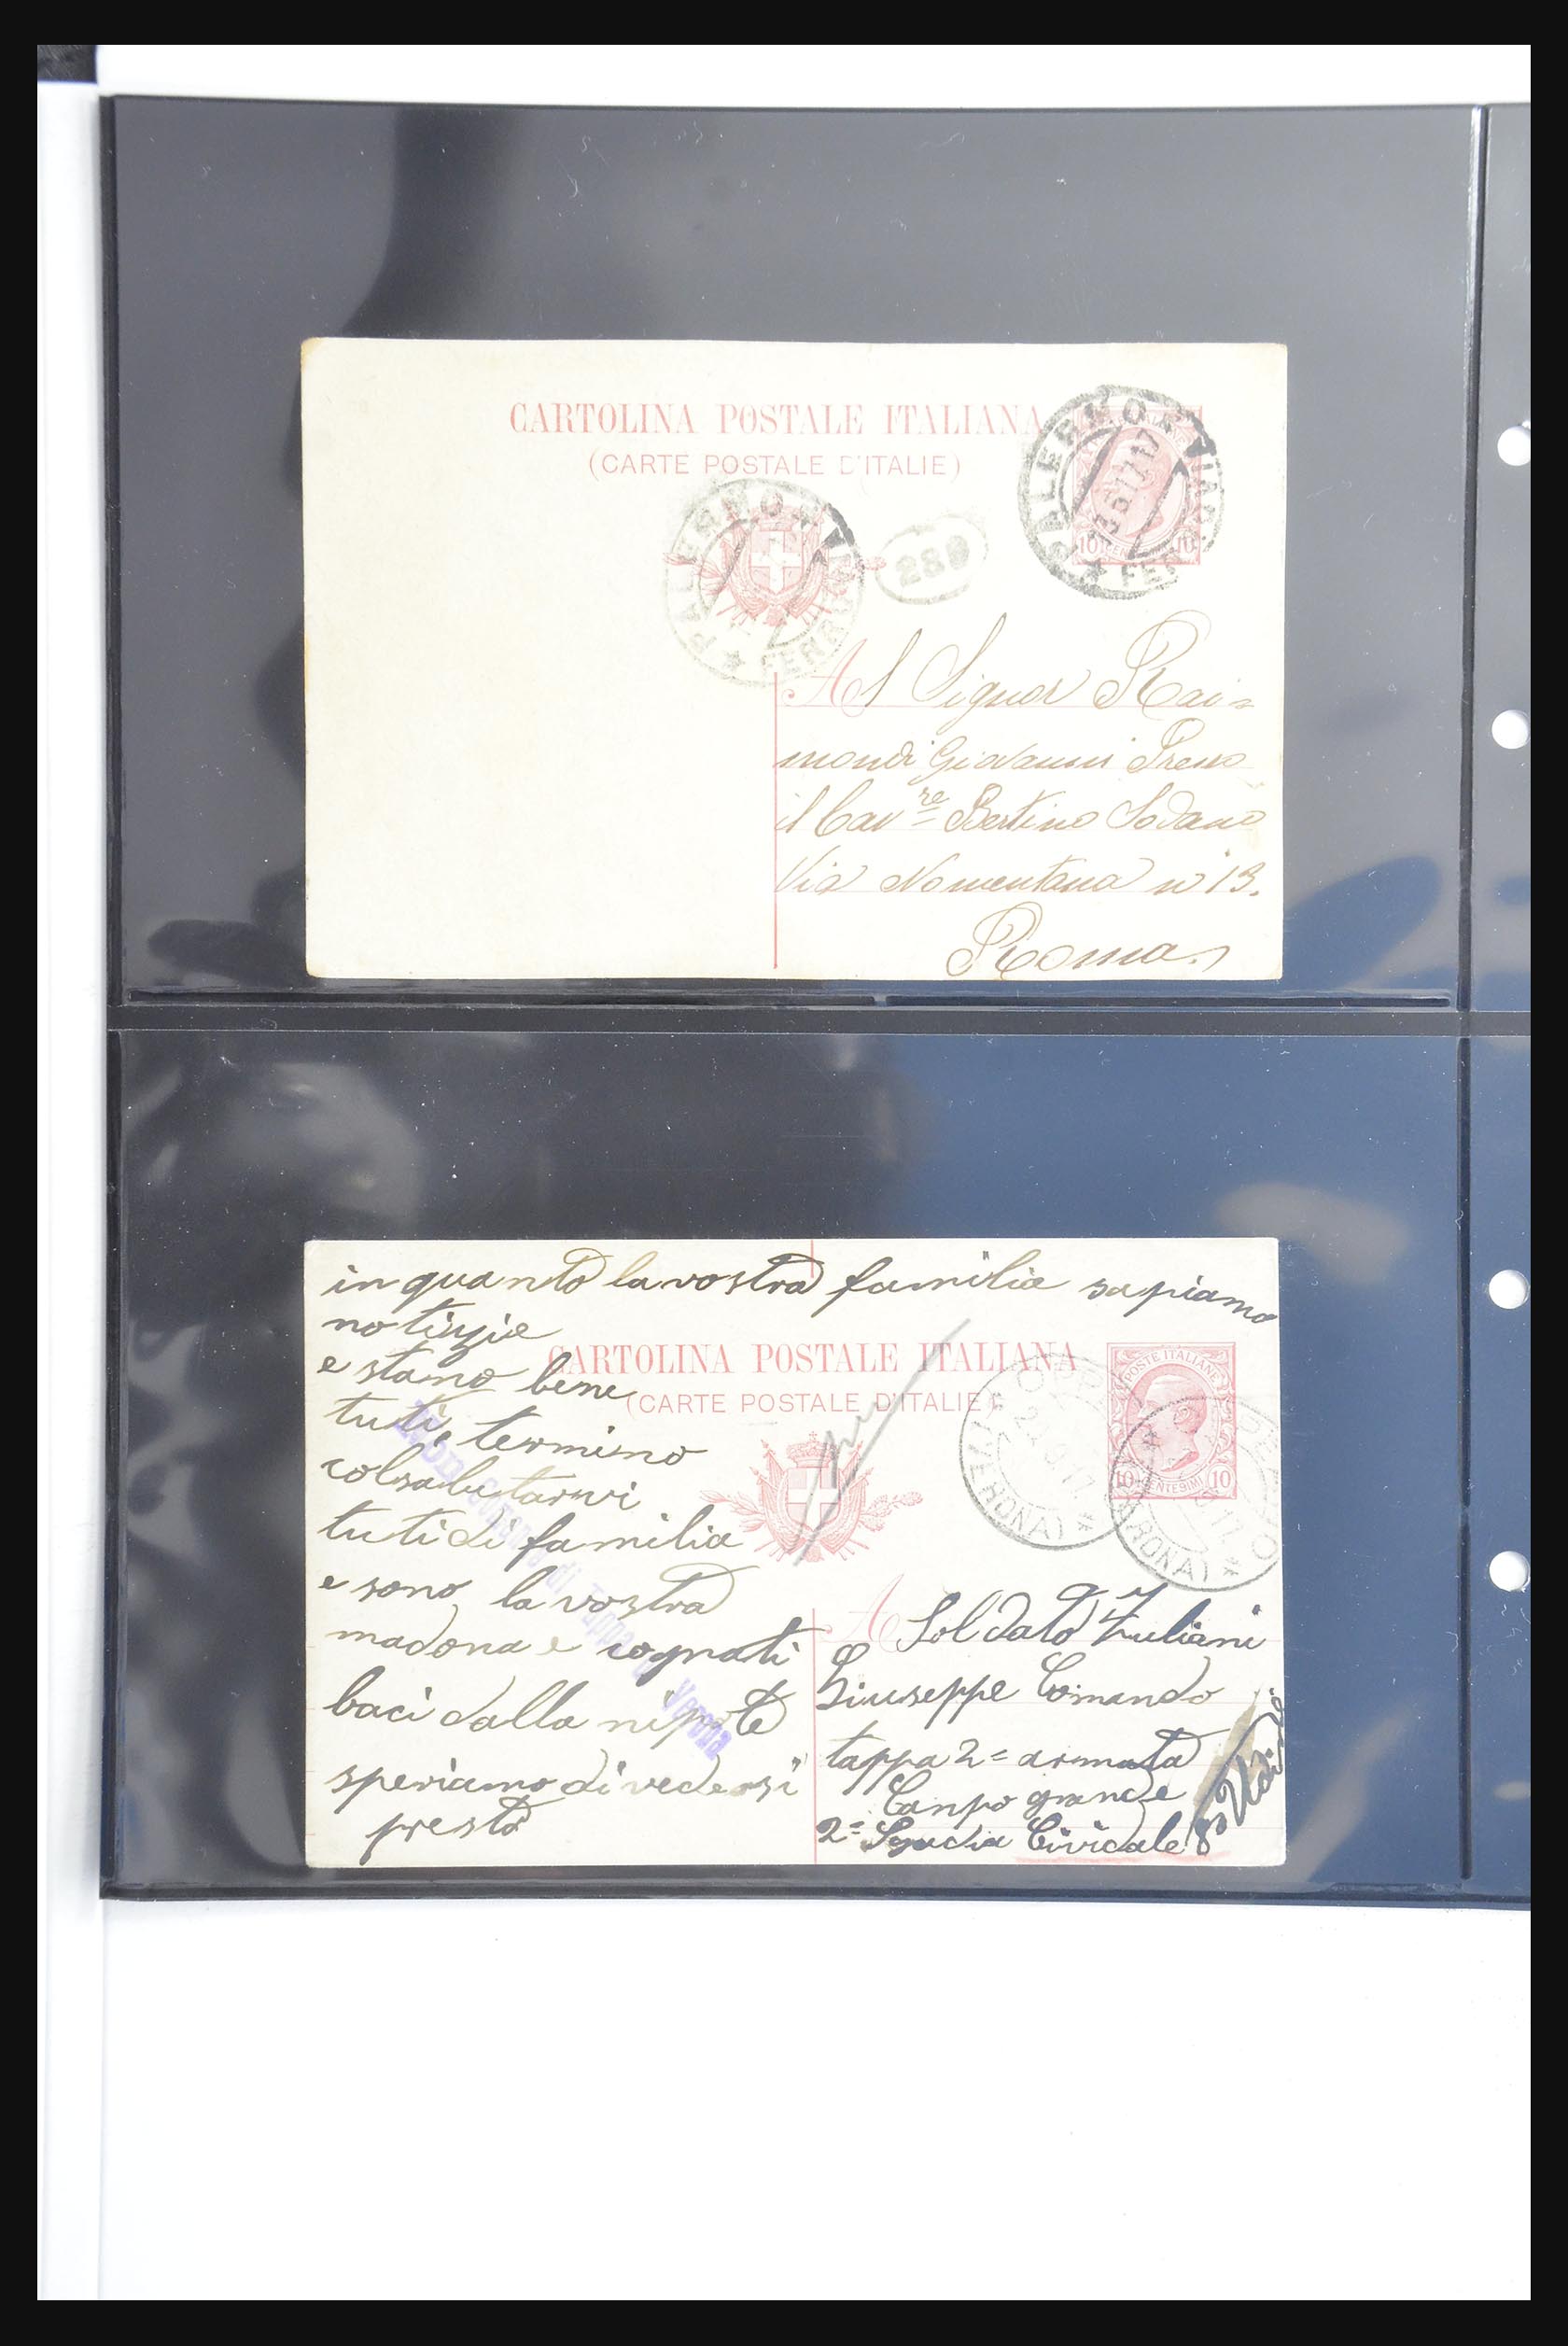 CARTOLINA POSTALE ITALIANA
(CARTE POSTALE D'ITALIE)
PALERMO
FERROVIA
10 10
PALERMO
FERROVIA
Al Signor Rai=
mondi Giovanni Presso
il Cav re Bertino Sodano
Via Nomentana n° 13.
Roma
in quanto la vostra familia sapiamo
notizie
e stamo bene
tuti, termino
colsalutarvi
tuti di familia
e sono la vostra
madona e cognati
baci dalla nipote
speriamo di vedersi
presto
CARTOLINA POSTALE ITALIANA
(CARTE POSTALE D'ITALIE)
POSTE ITALIANE
10 CENTESIMI 10
(VERONA)
(VERONA)
di Tappa Verona
A Soldato Zuliani
Giuseppe Comando
tappa 2= armata
Canpo grande
2= Cividale
Udine